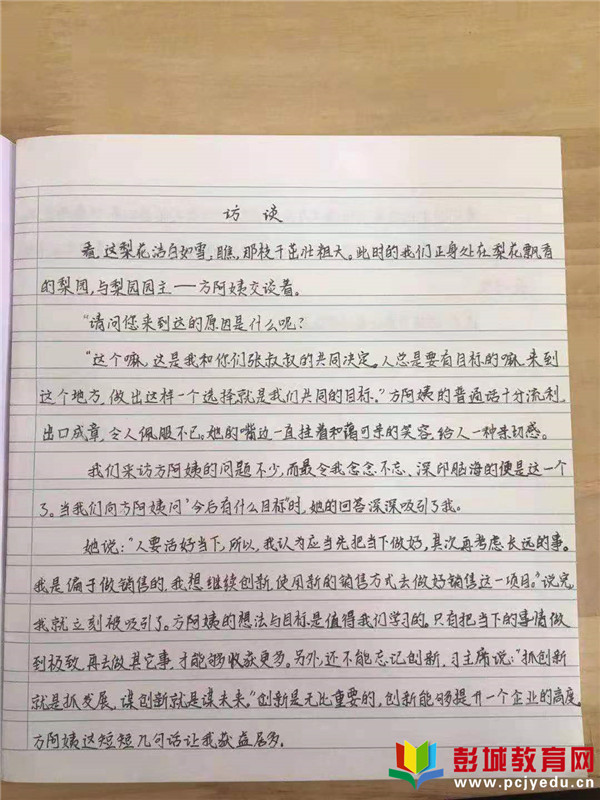 访谈
看,这梨花洁白如雪,瞧,那枝干茁壮粗大。此时的我们正身处在梨花飘香
的梨园,与梨园园主——方阿姨交谈着。
“请问您来到这的原因是什么呢?
“这个嘛,这是我和你们张叔叔的共同决定。人总是要有目标的嘛,来到
这个地方,做出这样一个选择就是我们共同的目标。”方阿姨的普通话十分流利。
出口成章,令人佩服不已。她的嘴边一直挂着和蔼可亲的笑容,给人一种亲切感。
我们采访方阿姨的问题不少,而最令我念念不忘、深印脑海的便是这一个
了。当我们向方阿姨问“今后有什么目标”时,她的回答深深吸引了我。
她说:“人要活好当下,所以,我认为应当先把当下做好,其次再考虑长远的事。
我是偏于做销售的,我想继续创新,使用新的销售方式去做好销售这一项目。”说完,
我就立刻被吸引了。方阿姨的想法与目标是值得我们学习的。只有把当下的事情做
到极致,再去做其它事,才能够收获更多。另外,还不能忘记创新,习主席说:“抓创新
就是抓发展,谋创新就是谋未来。”创新是无比重要的,创新能够提升一个企业的高度。
方阿姨这短短几句话让我获益居多。
彭城教育网
www.pcjyedu.cn